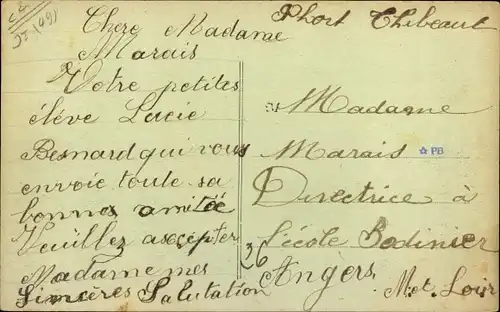 Chere Madame
Marais
Votre petites
éléve Lucie
Besnard qui vous
envoie toute sa
bonnes amitée
Veuillez asccepter
Madame mes
Sincères Salutation
Phort Thibeaut
Madame
Marais
PB
Directrice à
l'école Bodinier
36
Angers
Met. Loir